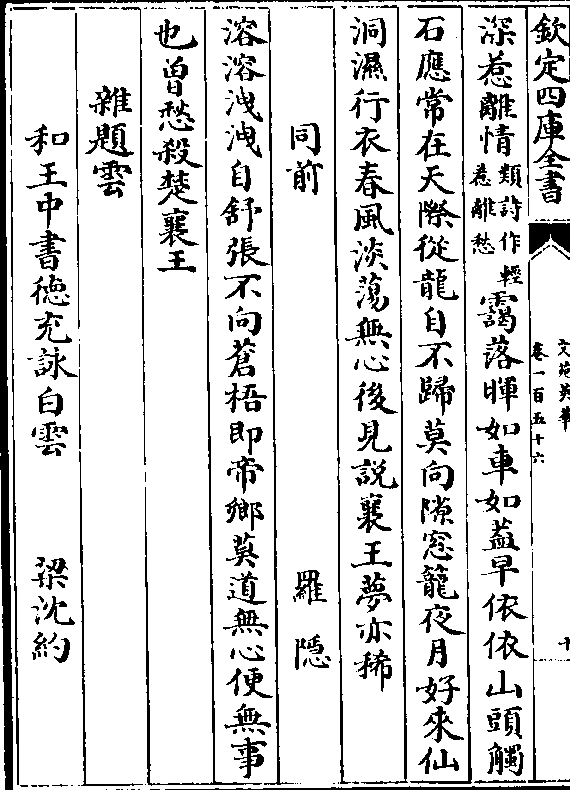 欽定四庫全書
文苑英華
卷一百五十六
十
深惹離情類詩作惹離愁輕靄落暉如車如蓋早依依山頭觸
石應常在天際從龍自不歸莫向隙窓籠夜月好來仙
洞濕行衣春風淡蕩無心後見説襄王夢亦稀
同前 羅隱
溶溶洩洩自舒張不向蒼梧即帝鄉莫道無心便無事
也曽愁殺楚襄王
雜題雲
和王中書德充詠白雲 梁沈約